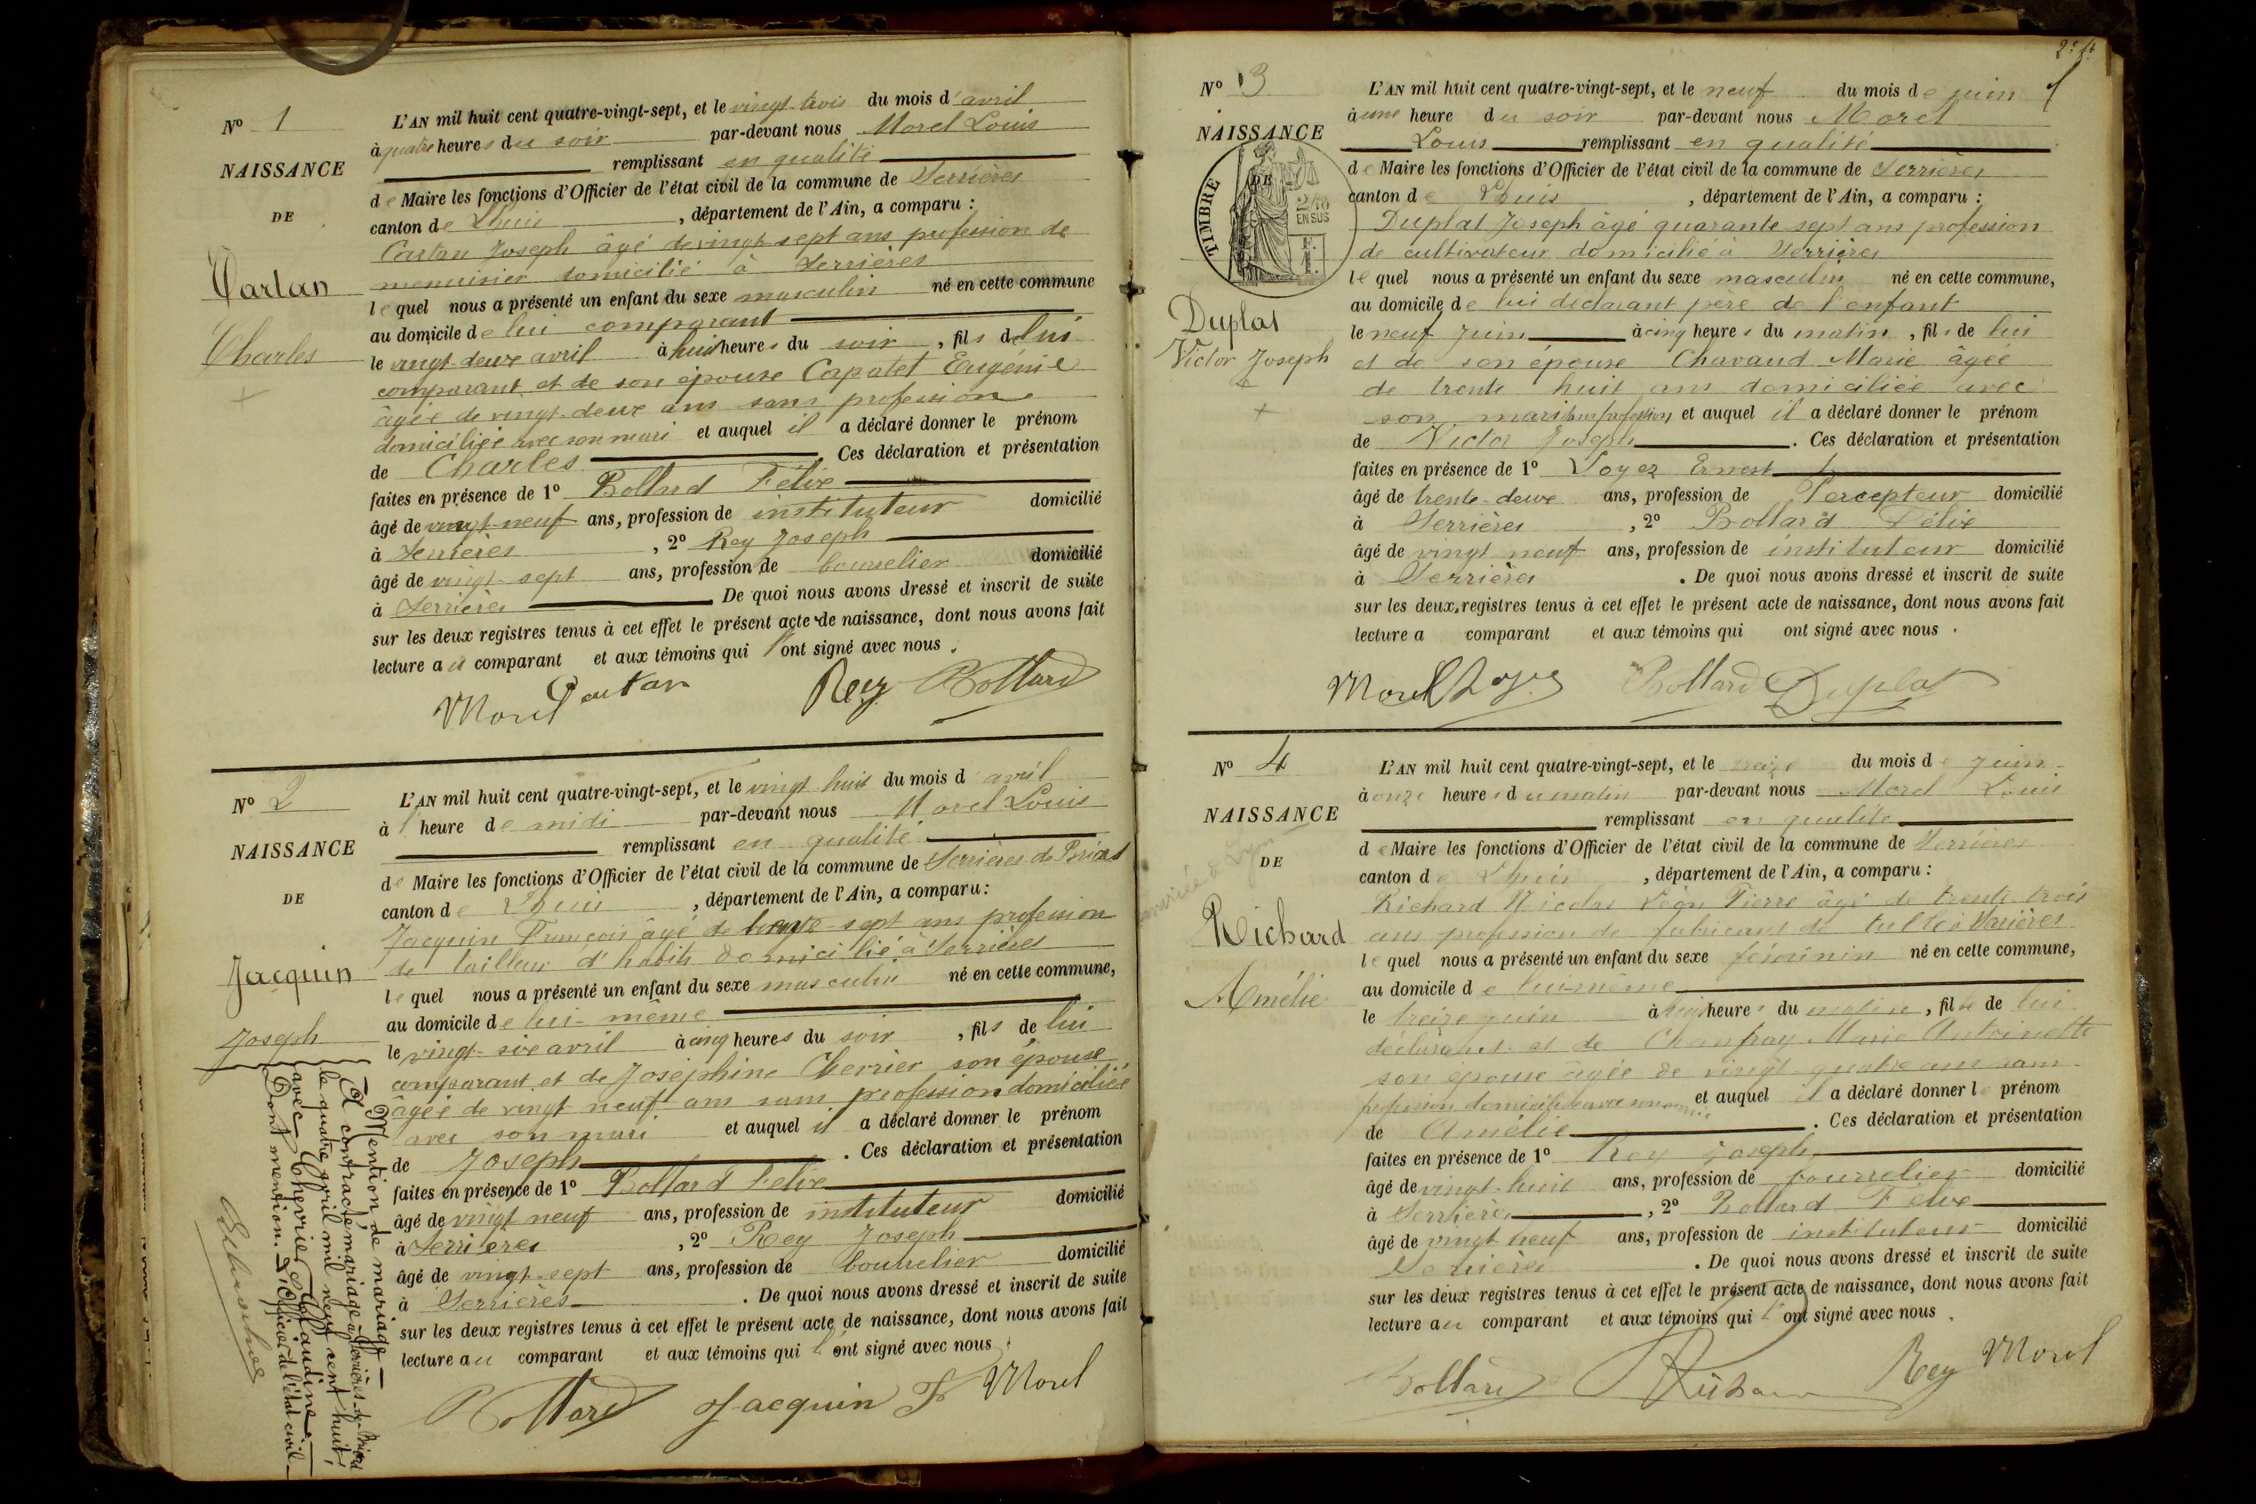 N° 1
NAISSANCE
DE
Cartan
Charles
L'AN mil huit cent quatre-vingt-sept, et le vingt trois du mois d'avril
à quatre heures du soir par-devant nous Morel Louis
remplissant en qualité
de Maire les fonctions d'Officier de l'état civil de la commune de Serrières
canton de Lhuis, département de l'Ain, a comparu :
Cartan Joseph âgé de vingt sept ans profession de
menuisier domicilié à Serrières
lequel nous a présenté un enfant du sexe masculin né en cette commune
au domicile de lui comparant
le vingt-deux avril à huit heures du soir, fils de lui
comparant et de son épouse Capotet Eugénie
âgée de vingt-deux ans sans profession
domiciliée avec son mari et auquel il a déclaré donner le prénom
de Charles Ces déclaration et présentation
faites en présence de 1° Bollard Félix
âgé de vingt-neuf ans, profession de instituteur domicilié
à Serrières, 2° Rey Joseph
âgé de vingt-sept ans, profession de bourrelier domicilié
à Serrières De quoi nous avons dressé et inscrit de suite
sur les deux registres tenus à cet effet le présent acte de naissance, dont nous avons fait
lecture au comparant et aux témoins qui l'ont signé avec nous.
Morel Cartan Rey Bollard
N° 2
NAISSANCE
DE
Jacquin
Joseph
L'AN mil huit cent quatre-vingt-sept, et le vingt huit du mois d'avril
à l'heure de midi par-devant nous Morel Louis
remplissant en qualité
de Maire les fonctions d'Officier de l'état civil de la commune de Serrières de Briord
canton de Lhuis, département de l'Ain, a comparu :
Jacquin François âgé de trente-sept ans profession
de tailleur d'habits domicilié à Serrières
lequel nous a présenté un enfant du sexe masculin né en cette commune,
au domicile de lui-même
le vingt-six avril à cinq heures du soir, fils de lui
comparant et de Joséphine Cherrier son épouse
âgée de vingt neuf ans sans profession domiciliée
avec son mari et auquel il a déclaré donner le prénom
de Joseph. Ces déclaration et présentation
faites en présence de 1° Bollard Félix
âgé de vingt neuf ans, profession de instituteur domicilié
à Serrières, 2° Rey Joseph
âgé de vingt-sept ans, profession de bourrelier domicilié
à Serrières. De quoi nous avons dressé et inscrit de suite
sur les deux registres tenus à cet effet le présent acte de naissance, dont nous avons fait
lecture au comparant et aux témoins qui l'ont signé avec nous.
Bollard Jacquin F Morel
Mention de mariage
A contracté mariage à Serrières-de-Briord
le quatre avril mil neuf cent huit,
avec Chevrier Claudine.
Dont mention. L'Officier de l'état civil
N° 3
NAISSANCE
TIMBRE
2/10
EN SUS
Duplat
Victor Joseph
L'AN mil huit cent quatre-vingt-sept, et le neuf du mois de juin
à une heure du soir par-devant nous Morel
Louis remplissant en qualité
de Maire les fonctions d'Officier de l'état civil de la commune de Serrières
canton de Lhuis, département de l'Ain, a comparu :
Duplat Joseph âgé quarante sept ans profession
de cultivateur domicilié à Serrières
lequel nous a présenté un enfant du sexe masculin né en cette commune,
au domicile de lui déclarant père de l'enfant
le neuf juin à cinq heures du matin, fils de lui
et de son épouse Chavaud Marie âgée
de trente huit ans domiciliée avec
son mari sans profession et auquel il a déclaré donner le prénom
de Victor Joseph. Ces déclaration et présentation
faites en présence de 1° Loyez Ernest
âgé de trente-deux ans, profession de Percepteur domicilié
à Serrières, 2° Bollard Félix
âgé de vingt neuf ans, profession de instituteur domicilié
à Serrières. De quoi nous avons dressé et inscrit de suite
sur les deux registres tenus à cet effet le présent acte de naissance, dont nous avons fait
lecture a comparant et aux témoins qui ont signé avec nous.
Morel Bollard Duplat
N° 4
NAISSANCE
DE
Richard
Amélie
L'AN mil huit cent quatre-vingt-sept, et le treize du mois de juin
à onze heures du matin par-devant nous Morel Louis
remplissant en qualité
de Maire les fonctions d'Officier de l'état civil de la commune de Serrières
canton de Lhuis, département de l'Ain, a comparu :
Richard Nicolas Léon Pierre âgé de trente trois
ans profession de fabricant de tulle à Serrières
lequel nous a présenté un enfant du sexe féminin né en cette commune,
au domicile de lui-même
le treize juin à heures du matin, fille de lui
déclarant et de Marie Antoinette
son épouse âgée de vingt-quatre ans sans
profession domiciliée avec son mari et auquel il a déclaré donner le prénom
de Amélie. Ces déclaration et présentation
faites en présence de 1° Rey Joseph
âgé de vingt-huit ans, profession de bourrelier domicilié
à Serrières, 2° Bollard Félix
âgé de vingt neuf ans, profession de instituteur domicilié
Serrières. De quoi nous avons dressé et inscrit de suite
sur les deux registres tenus à cet effet le présent acte de naissance, dont nous avons fait
lecture au comparant et aux témoins qui l'ont signé avec nous.
Bollard Richard Rey Morel